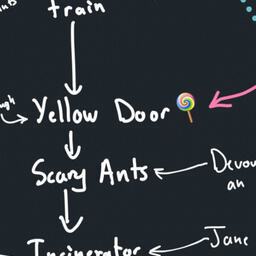 train
Yellow Door
Scary Ants
Devou
an
Incinerator
Jane